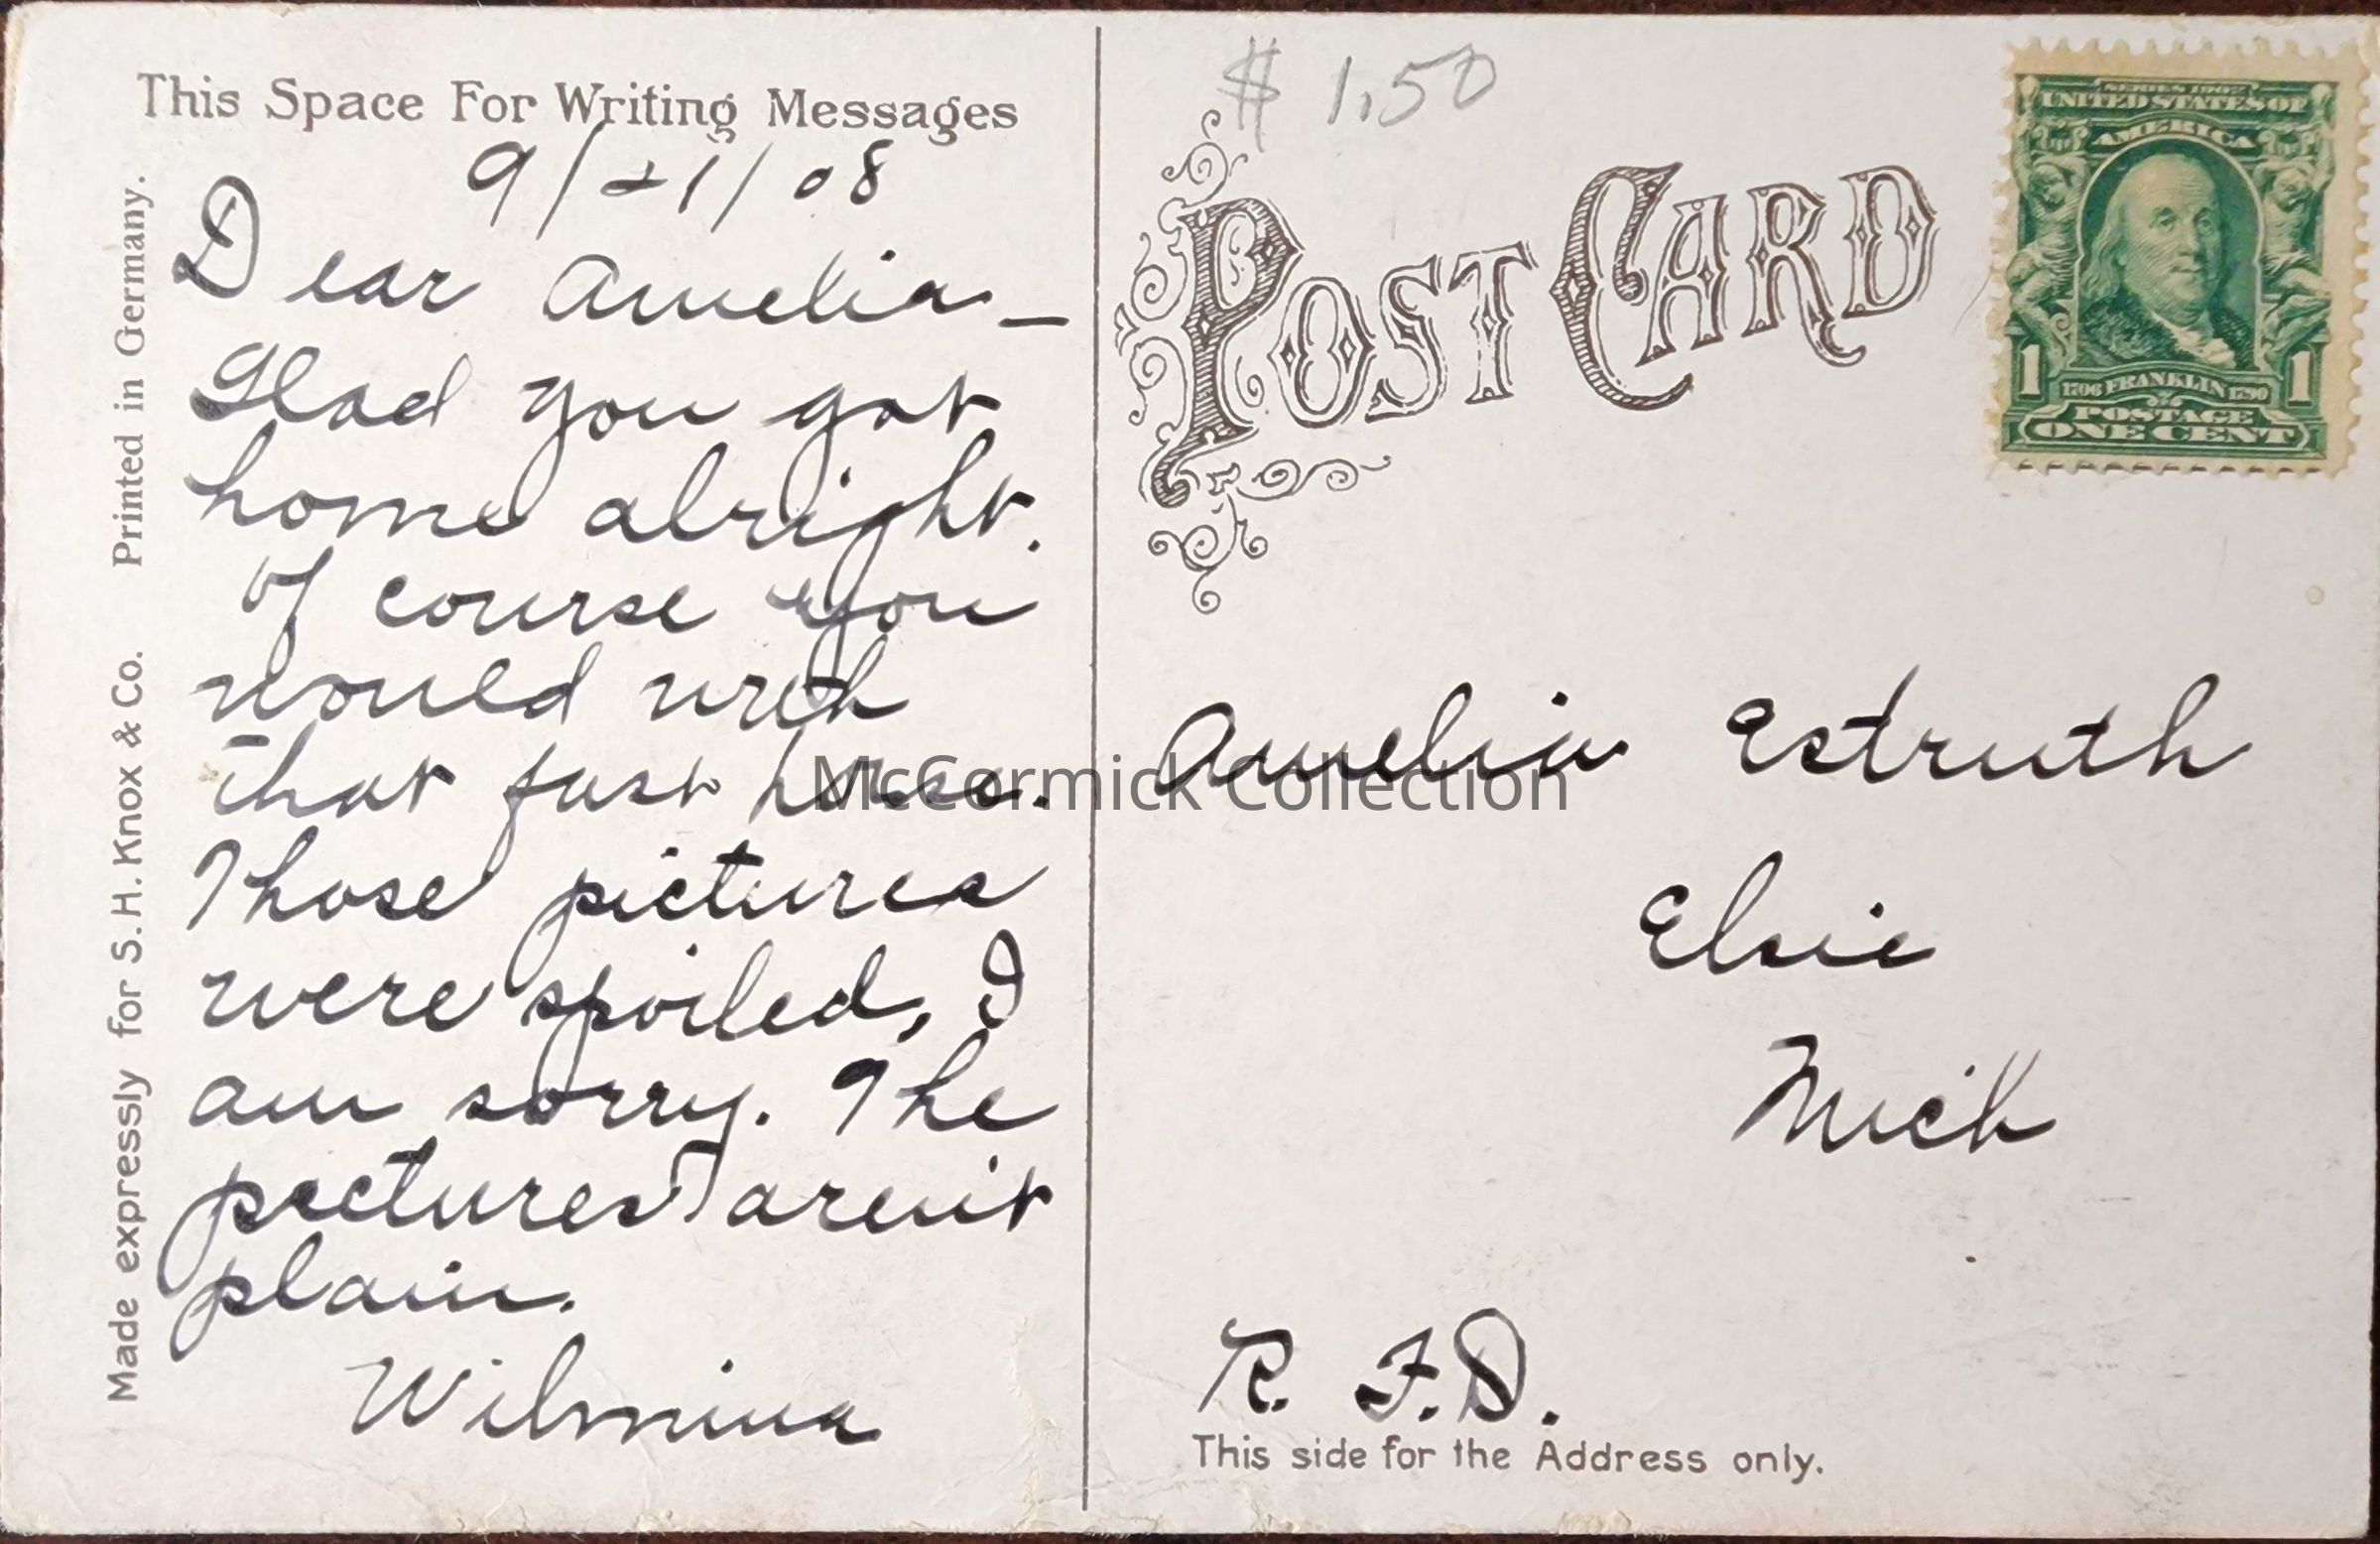 This Space For Writing Messages
9/21/08
Dear Amelia—
Glad you got
home alright.
Of course you
would with
that fast horse.
Those pictures
were spoiled, I
am sorry. The
pictures aren't
plain.
Wilmina
Made expressly for S. H. Knox & Co. Printed in Germany.
$ 1.50
POST CARD
SERIES 1902
UNITED STATES OF
AMERICA
1 1706 FRANKLIN 1790 1
POSTAGE
ONE CENT
Amelia Estruth
Elsie
Mich
R. F. D.
This side for the Address only.
McCormick Collection